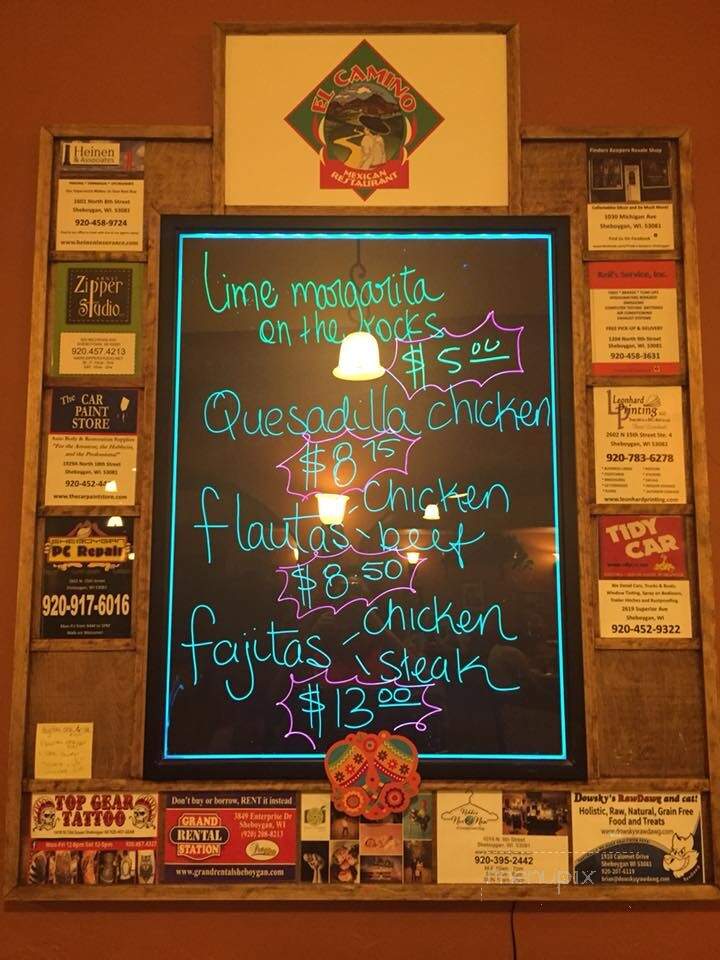 EL CAMINO
MEXICAN
RESTAURANT
Heinen
& Associates
1601 North 8th Street
Sheboygan, WI. 53081
920-458-9724
www.heineninsurance.com
Zipper
Studio
920.457.4213
The CAR
PAINT
STORE
Auto Body & Restoration Supplies
"For the Amateur, the Hobbyist,
and the Professional"
1929A North 18th Street
Sheboygan, WI. 53081
920-452-44
www.thecarpaintstore.com
SHEBOYGAN
PC Repair
920-917-6016
Mon-Fri from 9AM to 5PM
Walk-in Welcome!
Lime margarita
on the rocks
$5.00
Quesadilla chicken
$8.75
flautas - chicken
- beef
$8.50
fajitas - chicken
- steak
$13.00
Finders Keepers Resale Shop
1030 Michigan Ave
Sheboygan, WI. 53081
Find Us On Facebook
Service, Inc.
FREE PICK-UP & DELIVERY
1204 North 9th Street
Sheboygan, WI. 53081
920-458-3631
Leonhard
Printing
2602 N 15th Street Ste. 4
Sheboygan, WI. 53081
920-783-6278
www.leonhardprinting.com
TIDY
CAR
We Detail Cars, Trucks & Boats,
Window Tinting, Spray on Bedliners,
Trailer Hitches and Rustproofing
2619 Superior Ave
Sheboygan, WI
920-452-9322
TOP GEAR
TATTOO
Mon-Fri 12-8pm Sat 12-5pm
920.457.4327
Don't buy or borrow, RENT it instead
GRAND
RENTAL
STATION
3849 Enterprise Dr
Sheboygan, WI
(920) 208-8213
www.grandrentalsheboygan.com
Sheboygan, WI 53081
920-395-2442
Dowsky's RawDawg and cat!
Holistic, Raw, Natural, Grain Free
Food and Treats
www.dowskysrawdawg.com
1910 Calumet Drive
Sheboygan WI 53081
920-207-6119
brian@dowskysrawdawg.com
menupix